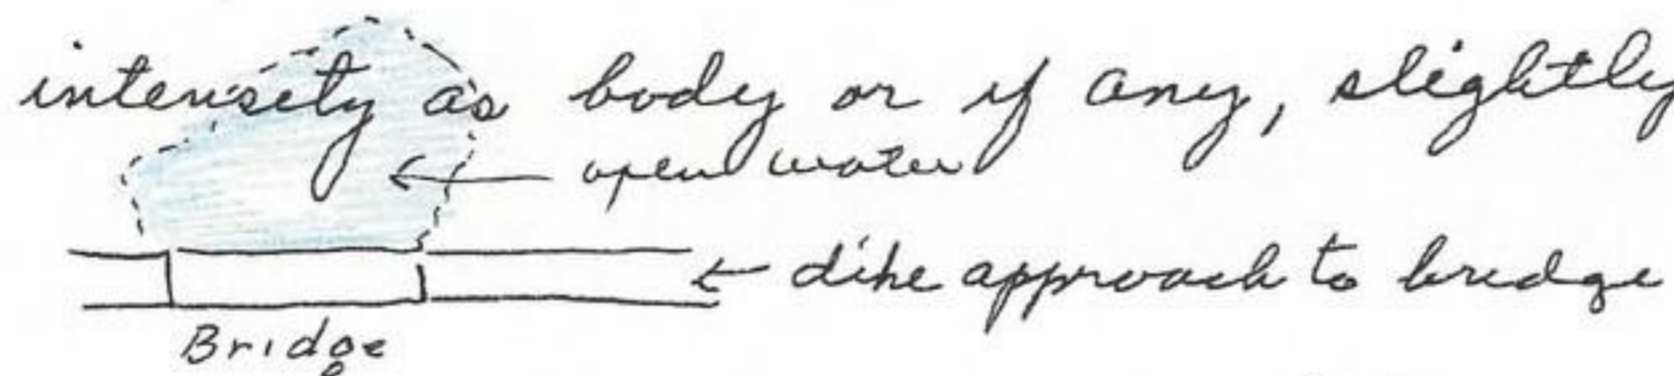 intensity as body or if any, slightly
open water
dike approach to bridge
Bridge